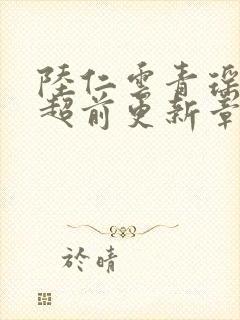 陸仁雲青瑶
超前更新章
於晴